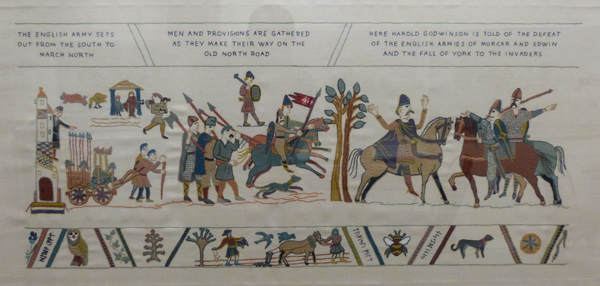 THE ENGLISH ARMY SETS
OUT FROM THE SOUTH TO
MARCH NORTH
MEN AND PROVISIONS ARE GATHERED
AS THEY MAKE THEIR WAY ON THE
OLD NORTH ROAD
HERE HAROLD GODWINSON IS TOLD OF THE DEFEAT
OF THE ENGLISH ARMIES OF MORCAR AND EDWIN
AND THE FALL OF YORK TO THE INVADERS